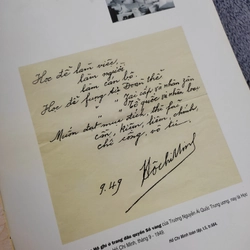 Học để làm việc,
làm người,
làm cán bộ.
Học để phụng sự Đoàn thể
" giai cấp và nhân dân
" Tổ quốc và nhân loại
Muốn đạt mục đích, thì phải
cần, kiệm, liêm, chính,
chí công, vô tư.
9.49 Hồ Chí Minh
ghi ở trang đầu quyển Sổ vàng của Trường Nguyễn Ái Quốc Trung ương, nay là Học
Hồ Chí Minh, tháng 9 - 1949
Hồ Chí Minh toàn tập